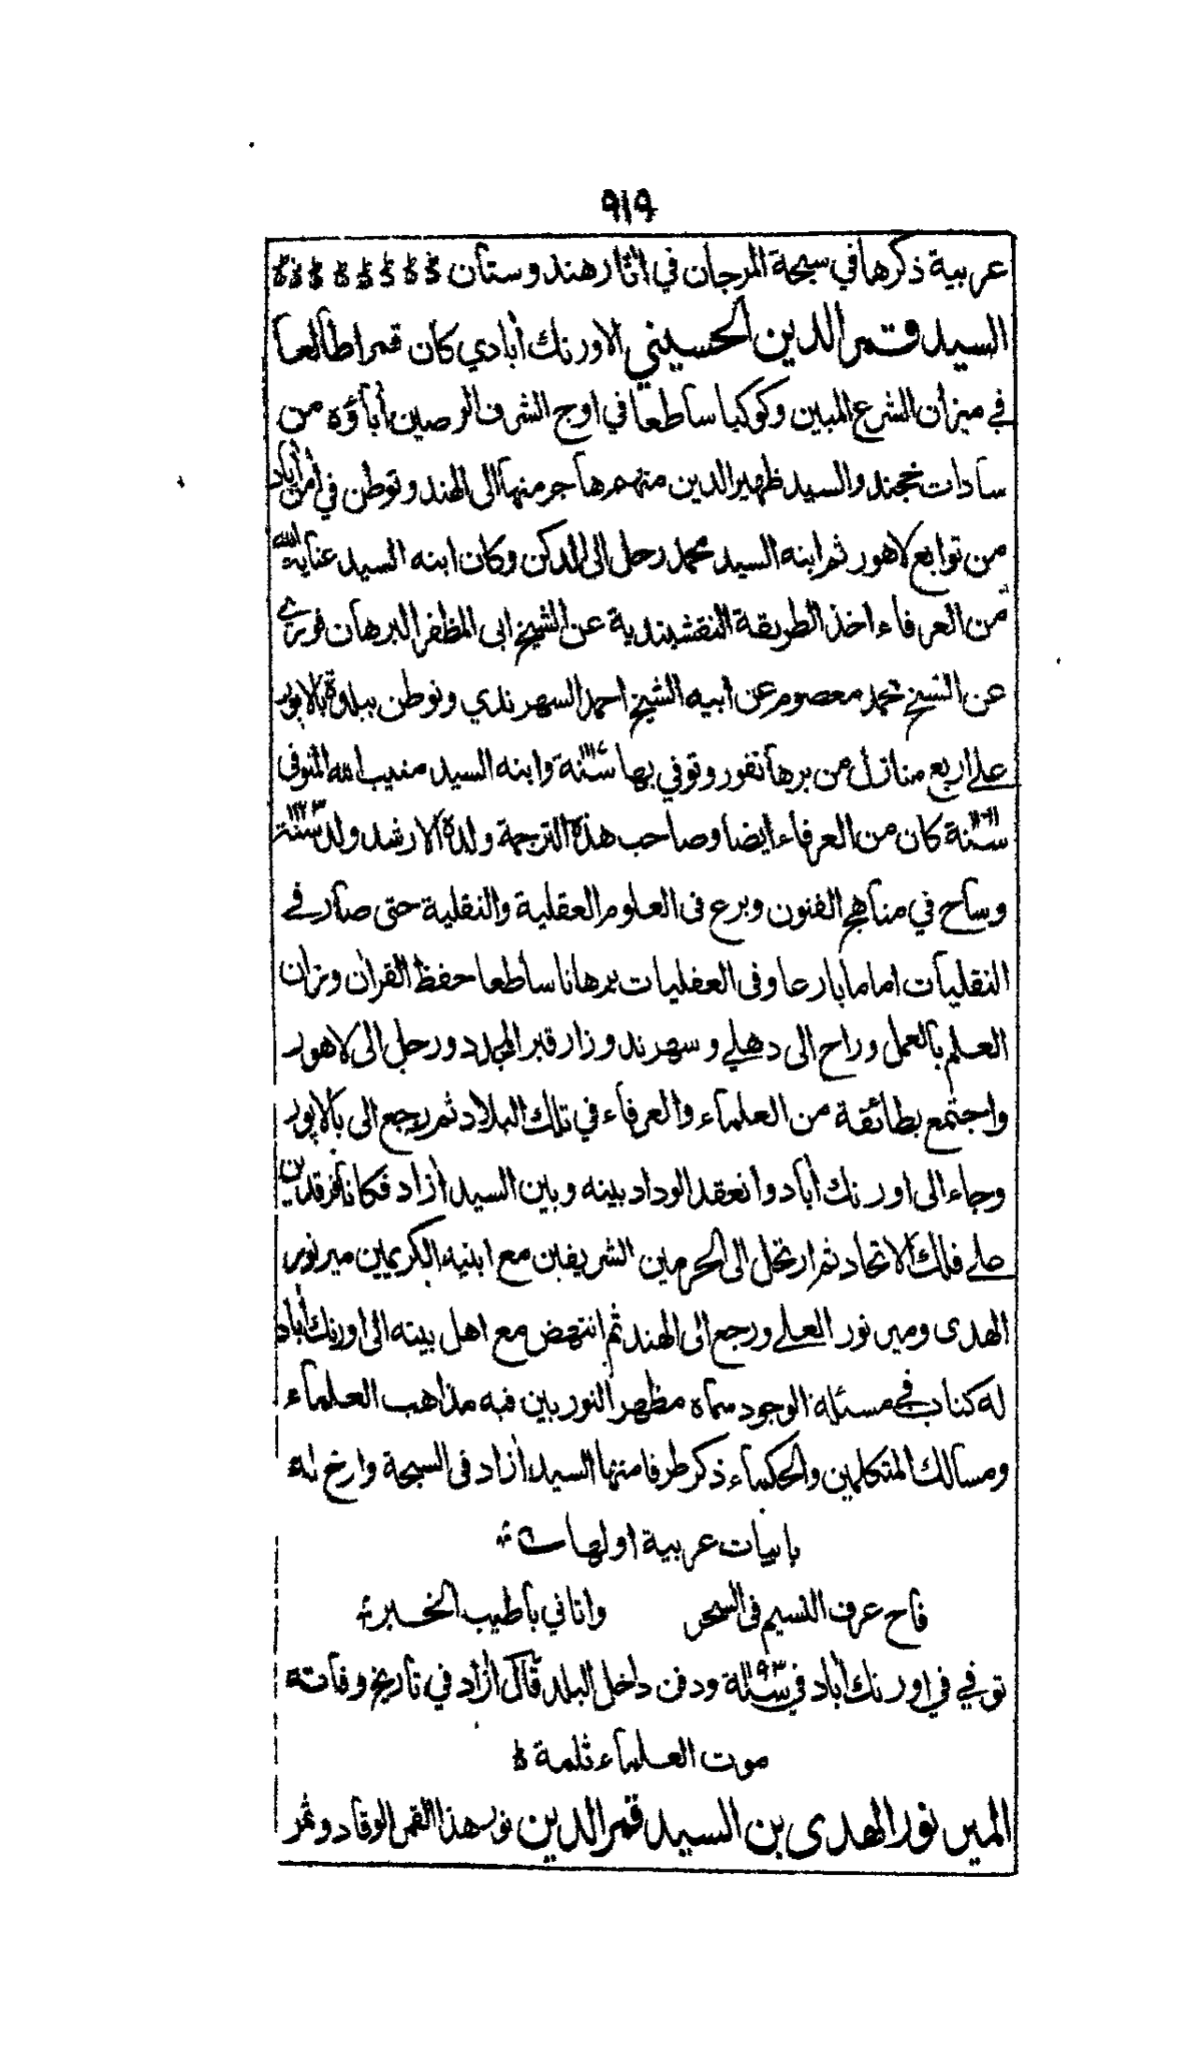 ٩١٩
عربية ذكرها في سبحة المرجان في اثار هندوستان
السيد قمر الدين الحسيني الاورنك أبادي كان قمرا طالعا
في ميزان الشرع المبين وكوكبا ساطعا في اوج الشرف الرصين أباؤه من
سادات خجند والسيد ظهير الدين منهم هاجر منها الى الهند وتوطن في أمن أباد
من توابع لاهور ثم ابنه السيد محمد رحل الى الدكن وكان ابنه السيد عناية الله
من العرفاء اخذ الطريقة النقشبندية عن الشيخ ابى المظفر البرهان فوري
عن الشيخ محمد معصوم عن ابيه الشيخ احمد السهرندي وتوطن ببلدة بالاپور
على اربع منازل من برهانفور وتوفي بها سنة ١١١٧ وابنه السيد منيب الله المتوفى
سنة ١١٦١ كان من العرفاء ايضا وصاحب هذه الترجمة ولده الارشد ولد سنة ١١٢٣
وساح في مناهج الفنون وبرع فى العلوم العقلية والنقلية حتى صار في
النقليات اماما بارعا وفى العقليات برهانا ساطعا حفظ القرأن وزان
العلم بالعمل وراح الى دهلي وسهرند وزار قبر المجدد ورحل الى لاهور
واجتمع بطائفة من العلماء والعرفاء في تلك البلاد ثم رجع الى بالاپور
وجاء الى اورنك أباد وانعقد الوداد بينه وبين السيد أزاد فكانا فرقدين
على فلك الاتحاد ثم ارتحل الى الحرمين الشريفين مع ابنيه الكريمين مير نور
الهدى ومير نور العلى ورجع الى الهند ثم انتهض مع اهل بيته الى اورنك أباد
له كتاب في مسئلة الوجود سماه مظهر النور بين فيه مذاهب العلماء
ومسالك المتكلمين والحكماء ذكر طرفا منها السيد أزاد فى السبحة وارخ له
بابيات عربية اولها
فاح عرف النسيم فى السحر واتاني باطيب الخبر
توفي في اورنك أباد في سنة ١١٩٣ ودفن داخل البلد قال أزاد في تاريخ وفاته
موت العلماء ثلمة
المير نور الهدى بن السيد قمر الدين نور هذا القمر الوقاد وثمر